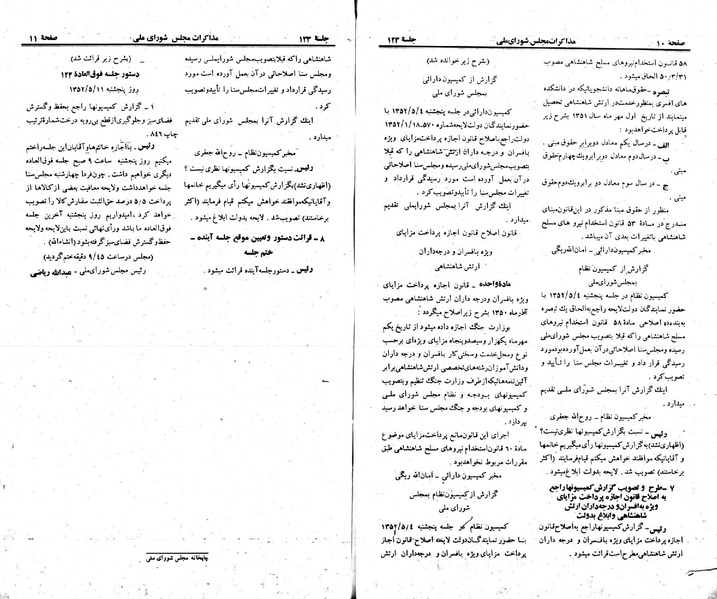 صفحهٔ ۱۰
مذاکرات مجلس شورای ملی
جلسهٔ ۱۲۳
۵۸ قانون استخدام نیروهای مسلح شاهنشاهی مصوب
۵۰/۳/۳۱ الحاق میشود .
تبصره - حقوق ماهانه دانشجویانیکه در دانشکده
های افسری بمنظور خدمت در ارتش شاهنشاهی تحصیل
مینمایند از تاریخ اول مهر ماه سال ۱۳۵۱ بشرح زیر
قابل پرداخت خواهد بود :
الف - در سال یکم معادل دو برابر حقوق مبنی .
ب - در سال دوم معادل دو برابر و یک چهارم حقوق
مبنی .
ج - در سال سوم معادل دو برابر و یک دوم حقوق
مبنی .
منظور از حقوق مبنا مذکور در این قانون مبنای
مندرج در مادهٔ ۵۳ قانون استخدام نیرو های مسلح
شاهنشاهی با تغییرات بعدی آن میباشد .
مخبر کمیسیون دارائی - امان‌الله ریگی
گزارش از کمیسیون نظام
بمجلس شورای ملی
کمیسیون نظام در جلسه پنجشنبه ۱۳۵۲/۵/۴ با
حضور نمایندگان دولت لایحه راجع به الحاق یک تبصره
به بند ده اصلاحی مادهٔ ۵۸ قانون استخدام نیروهای
مسلح شاهنشاهی را که قبلا بتصویب مجلس شورای ملی
رسیده و مجلس سنا اصلاحاتی در آن بعمل آورده بود مورد
رسیدگی قرار داد و تغییرات مجلس سنا را تأیید و
تصویب کرد .
اینک گزارش آنرا بمجلس شورای ملی تقدیم
میدارد .
مخبر کمیسیون نظام - روح‌الله جعفری
رئیس - نسبت بگزارش کمیسیونها نظری نیست؟
(اظهاری نشد) به گزارش کمیسیونها رأی میگیریم خانمها
و آقایانیکه موافقند خواهش میکنم قیام فرمایند (اکثر
برخاستند) تصویب شد . لایحه بدولت ابلاغ میشود .
۷ - طرح و تصویب گزارش کمیسیونها راجع
به اصلاح قانون اجازه پرداخت مزایای
ویژه به افسران و درجه‌داران ارتش
شاهنشاهی و ابلاغ بدولت
رئیس - گزارش کمیسیونها راجع به اصلاح قانون
اجازه پرداخت مزایای ویژه بافسران و درجه‌داران
ارتش شاهنشاهی مطرح است قرائت میشود .
(بشرح زیر خوانده شد)
گزارش از کمیسیون دارائی
بمجلس شورای ملی
کمیسیون دارائی در جلسه پنجشنبه ۱۳۵۲/۵/۴ با
حضور نمایندگان دولت لایحه شماره ۵۷۰-۱۳۵۲/۱/۱۸
دولت راجع به اصلاح قانون اجازه پرداخت مزایای ویژه
بافسران و درجه داران ارتش شاهنشاهی را که قبلا
بتصویب مجلس شورای ملی رسیده و مجلس سنا اصلاحاتی
در آن بعمل آورده است مورد رسیدگی قرارداد و
تغییرات مجلس سنا را تأیید و تصویب کرد .
اینک گزارش آنرا بمجلس شورای ملی تقدیم
میدارد .
قانون اصلاح قانون اجازه پرداخت مزایای
ویژه بافسران و درجه‌داران
ارتش شاهنشاهی
مادهٔ واحده - قانون اجازه پرداخت مزایای
ویژه بافسران و درجه داران ارتش شاهنشاهی مصوب
آذر ماه ۱۳۵۰ بشرح زیر اصلاح میگردد :
بوزارت جنگ اجازه داده میشود از تاریخ یکم
مهرماه یکهزار و سیصد و پنجاه مزایای ویژه‌ای برحسب
نوع و محل خدمت و سختی کار بافسران و درجه داران
و دانش‌آموزان رشته‌های تخصصی ارتش شاهنشاهی برابر
آئین‌نامه‌هائیکه از طرف وزارت جنگ تنظیم و بتصویب
کمیسیونهای بودجه و نظام مجلس شورای ملی
و کمیسیونهای بودجه و جنگ مجلس سنا خواهد رسید
بپردازد .
اجرای این قانون مانع پرداخت مزایای موضوع
مادهٔ ۶۰ قانون استخدام نیروهای مسلح شاهنشاهی طبق
مقررات مربوط نخواهد بود .
مخبر کمیسیون دارائی - امان‌الله ریگی
گزارش از کمیسیون نظام بمجلس
شورای ملی
کمیسیون نظام در جلسه پنجشنبه ۱۳۵۲/۵/۴
با حضور نمایندگان دولت لایحه اصلاح قانون اجازه
پرداخت مزایای ویژه بافسران و درجه‌داران ارتش
جلسهٔ ۱۲۳
مذاکرات مجلس شورای ملی
صفحهٔ ۱۱
شاهنشاهی را که قبلا بتصویب مجلس شورایملی رسیده
و مجلس سنا اصلاحاتی در آن بعمل آورده است مورد
رسیدگی قرارداد و تغییرات مجلس سنا را تأیید و تصویب
کرد .
اینک گزارش آنرا بمجلس شورای ملی تقدیم
میدارد .
مخبر کمیسیون نظام - روح‌الله جعفری
رئیس - نسبت بگزارش کمیسیونها نظری نیست ؟
(اظهاری نشد) بگزارش کمیسیونها رأی میگیریم خانمها
و آقایانیکه موافقند خواهش میکنم قیام فرمایند (اکثر
برخاستند) تصویب شد . لایحه بدولت ابلاغ میشود .
۸ - قرائت دستور و تعیین موقع جلسه آینده -
ختم جلسه
رئیس - دستور جلسه آینده قرائت میشود .
(بشرح زیر قرائت شد)
دستور جلسه فوق‌العادهٔ ۱۲۴
روز پنجشنبه ۱۳۵۲/۵/۱۱
۱ - گزارش کمیسیونها راجع بحفظ و گسترش
فضای سبز و جلوگیری از قطع بی‌رویه درخت شمارهٔ ترتیب
چاپ ۸۴۶ .
رئیس - با اجازه خانمها و آقایان این جلسه را ختم
میکنیم روز پنجشنبه ساعت ۹ صبح جلسه فوق‌العاده
دیگری خواهیم داشت . چون فردا چهارشنبه مجلس سنا
جلسه خواهد داشت ولایحه معافیت بعضی از کالاها از
پرداخت ۵/۵ درصد حق‌الثبت سفارش کالا را تصویب
خواهد کرد . امیدواریم روز پنجشنبه آخرین جلسه
فوق‌العاده ما باشد ورأی نسبت باین لایحه ولایحه
حفظ و گسترش فضای سبز گرفته بشود (انشاءالله) .
(مجلس در ساعت ۹/۴۵ دقیقه ختم گردید)
رئیس مجلس شورای ملی - عبدالله ریاضی
چاپخانه مجلس شورای ملی